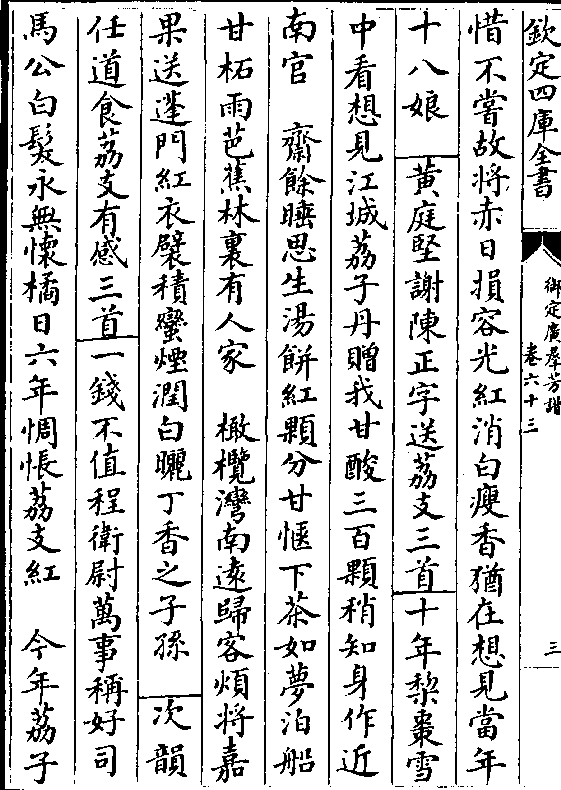 欽定四庫全書
御定廣羣芳譜
卷六十三
三
惜不嘗故將赤日損容光紅消白瘦香猶在想見當年
十八娘　黄庭堅謝陳正字送荔支三首十年棃棗雪
中看想見江城荔子丹贈我甘酸三百顆稍知身作近
南官　齋餘睡思生湯餅紅顆分甘愜下茶如夢泊船
甘柘雨芭蕉林裏有人家　橄欖灣南逺歸客煩將嘉
果送蓬門紅衣襞積蠻煙潤白曬丁香之子孫　次韻
任道食荔支有感三首一錢不值程衛尉萬事稱好司
馬公白髪永無懷橘日六年惆悵荔支紅　今年荔子